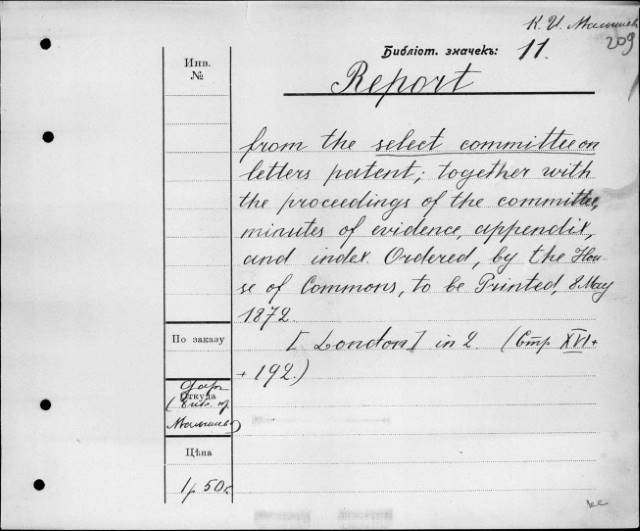 К. И.
209
Библіот. значекъ: 11.
Инв.
№
Report
from the select committee on
letters patent; together with
the proceedings of the committee,
minutes of evidence, appendix,
and index. Ordered, by the Hou-
se of Commons, to be Printed, 8 May
1872.
[London] in 2. (Стр XVI +
+ 192.)
По заказу
Даръ
Откуда
Цѣна
1 р 50 к